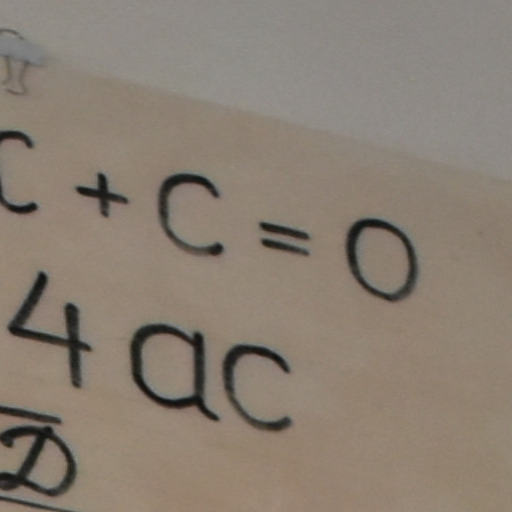 + C = 0
4ac
D